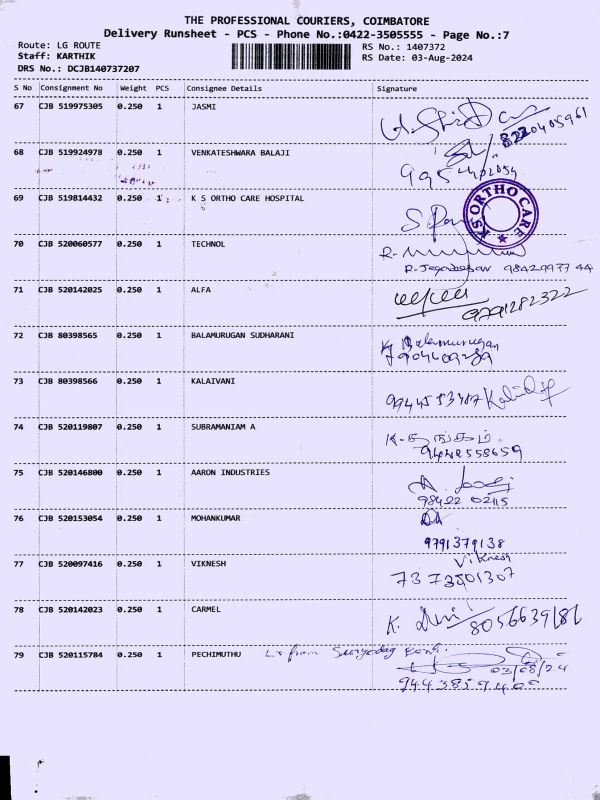 THE PROFESSIONAL COURIERS, COIMBATORE
Delivery Runsheet - PCS - Phone No.:0422-3505555 - Page No.:7
Route: LG ROUTE
Staff: KARTHIK
DRS No.: DCJB140737207
RS No.: 1407372
RS Date: 03-Aug-2024
S No Consignment No Weight PCS Consignee Details Signature
67 CJB 519975305 0.250 1 JASMI
8220405961
68 CJB 519924978 0.250 1 VENKATESHWARA BALAJI
69 CJB 519814432 0.250 1 K S ORTHO CARE HOSPITAL
KS ORTHO CARE
70 CJB 520060577 0.250 1 TECHNOL
R-
R-Jegadesan 9842997744
71 CJB 520142025 0.250 1 ALFA
9791282322
72 CJB 80398565 0.250 1 BALAMURUGAN SUDHARANI
K Balamurugan
7904609289
73 CJB 80398566 0.250 1 KALAIVANI
74 CJB 520119807 0.250 1 SUBRAMANIAM A
K-தங்கம்.
9442558659
75 CJB 520146800 0.250 1 AARON INDUSTRIES
98422 02115
76 CJB 520153054 0.250 1 MOHANKUMAR
9791379138
77 CJB 520097416 0.250 1 VIKNESH
Viknesh
7373501307
78 CJB 520142023 0.250 1 CARMEL
K. Devi 8056639186
79 CJB 520115784 0.250 1 PECHIMUTHU
from Suryoday Bank.
03/08/24